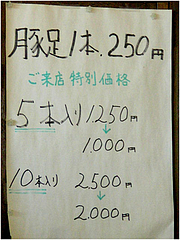 豚足1本.250円
ご来店特別価格
5本入り1250円
↓
1.000円
10本入り 2.500円
↓
2.000円